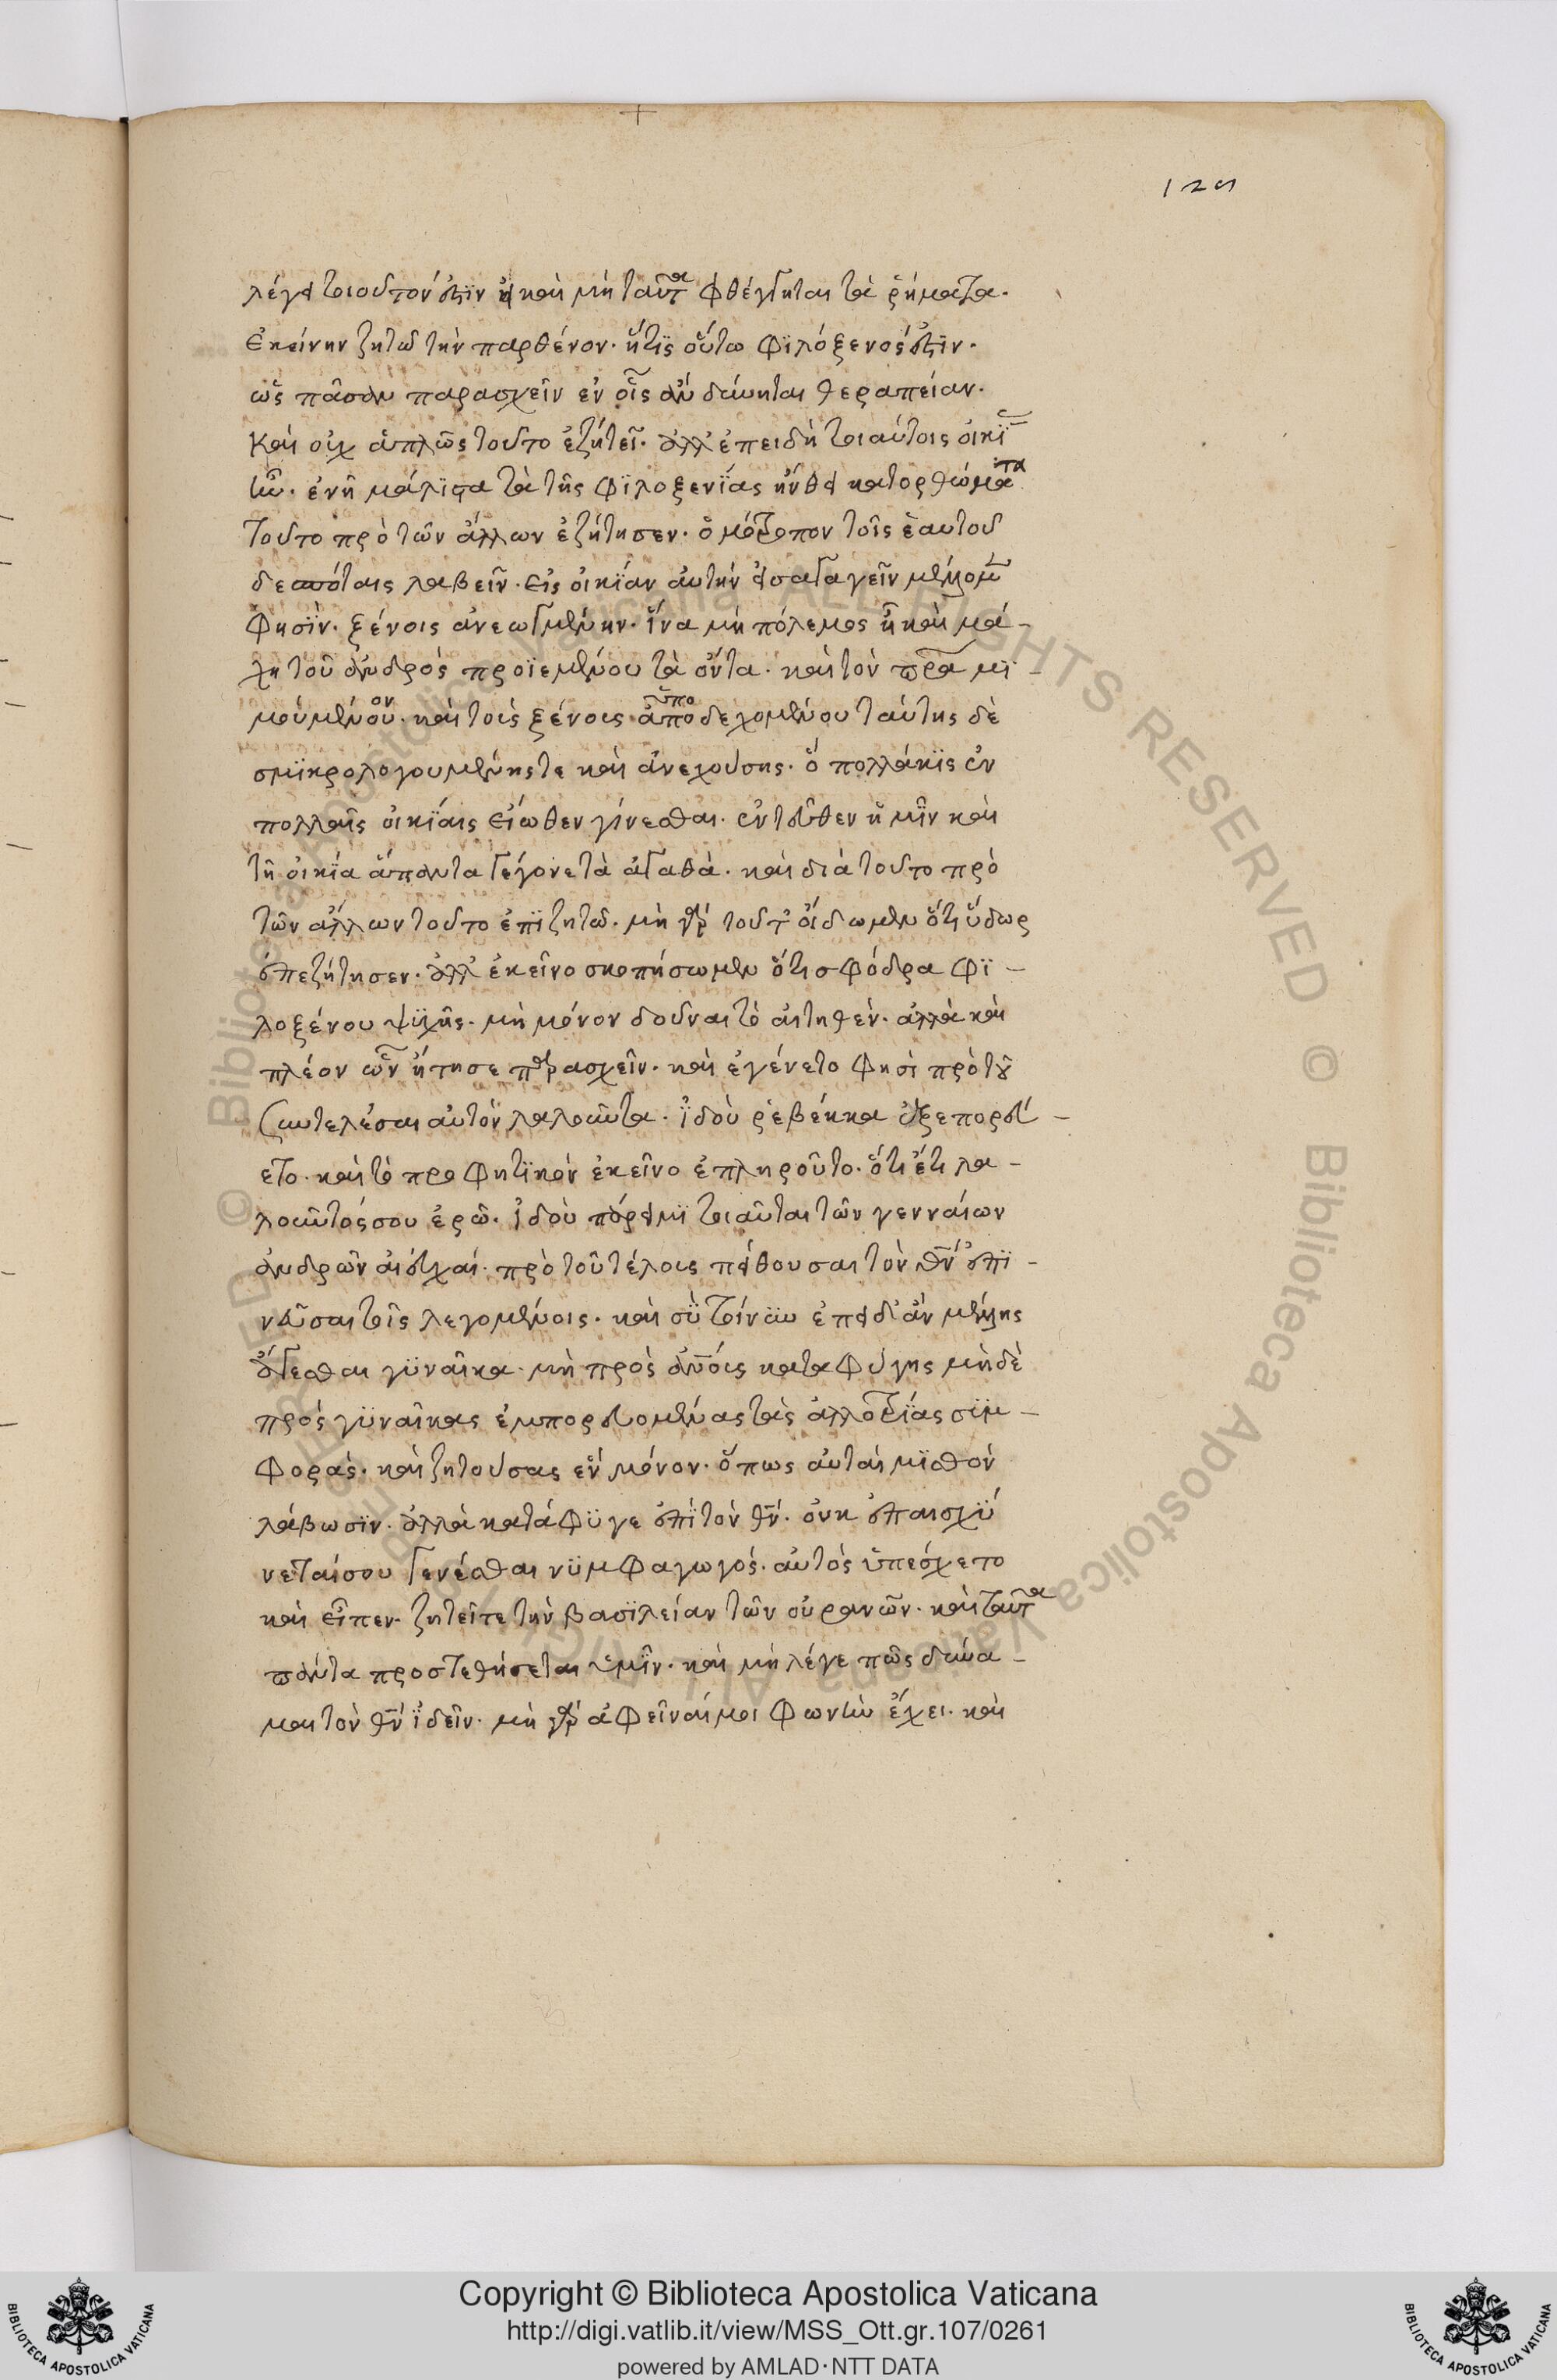 129
λέγει τοιοῦτόν ἐστιν εἰ καὶ μὴ ταῦτα φθέγγηται τὰ ῥήματα.
ἐκείνην ζητῶ τὴν παρθένον. ἥτις οὕτω φιλόξενός ἐστιν.
ὡς πᾶσαν παρασχεῖν ἐν οἷς ἂν δύνηται θεραπείαν.
καὶ οὐχ ἁπλῶς τοῦτο ἐζήτει. ἀλλ' ἐπειδὴ τοιαύτοις οἰκί
ην. ἐν ᾗ μάλιστα τὰ τῆς φιλοξενίας ἤνθει κατορθώματα
τοῦτο πρὸ τῶν ἄλλων ἐζήτησεν. ὁμότροπον τοῖς ἑαυτοῦ
δεσπόταις λαβεῖν. εἰς οἰκίαν αὐτὴν εἰσαγαγεῖν μέλλομεν
φησὶν. ξένοις ἀνεωγμένην. ἵνα μὴ πόλεμος ᾖ καὶ μά-
χη τοῦ ἀνδρὸς προϊεμένου τὰ ὄντα. καὶ τὸν πρα μι-
μούμενον. καὶ τοὺς ξένους ὑπο ἀποδεχομένου ταύτης δὲ
σμικρολογουμένης τε καὶ ἀνεχούσης. ὃ πολλάκις ἐν
πολλαῖς οἰκίαις εἴωθεν γίνεσθαι. ἐντεῦθεν ἡμῖν καὶ
τῇ οἰκία ἅπαντα γέγονε τὰ ἀγαθὰ. καὶ διὰ τοῦτο πρὸ
τῶν ἄλλων τοῦτο ἐπιζητῶ. μὴ γὰρ τοῦτ' ἴδωμεν ὅτι ὕδωρ
ἐπεζήτησεν. ἀλλ' ἐκεῖνο σκοπήσωμεν ὅτι σφόδρα φι-
λοξένου ψυχῆς. μὴ μόνον δοῦναι τὸ αἰτηθέν. ἀλλὰ καὶ
πλέον ὧν ᾔτησε παρασχεῖν. καὶ ἐγένετο φησὶ πρὸ τοῦ
συντελέσαι αὐτὸν λαλοῦντα. ἰδοὺ ῥεβέκκα ἐξεπορεύ-
ετο. καὶ τὸ προφητικὸν ἐκεῖνο ἐπληροῦτο. ὅτι ἔτι λα-
λοῦντός σου ἐρῶ. ἰδοὺ πάρειμι τοιαῦται τῶν γενναίων
ἀνδρῶν αἱ εὐχαί. πρὸ τοῦ τέλους πείθουσαι τὸν θν ἐπι-
νεῦσαι τοῖς λεγομένοις. καὶ σὺ τοίνυν ἐπειδ' ἂν μέλλης
ἄγεσθαι γυναῖκα. μὴ πρὸς ἀνους καταφύγης μὴδὲ
πρὸς γυναῖκας ἐμπορευομένας τὰς ἀλλοτρίας συμ-
φοράς. καὶ ζητούσας ἓν μόνον. ὅπως αὐταὶ μισθὸν
λάβωσιν. ἀλλὰ κατάφυγε ἐπὶ τὸν θν. οὐκ ἐπαισχύ
νεταί σου γενέσθαι νυμφαγωγός. αὐτὸς ὑπέσχετο
καὶ εἶπεν. ζητεῖτε τὴν βασιλείαν τῶν οὐρανῶν. καὶ ταῦτα
πάντα προστεθήσεται ὑμῖν. καὶ μὴ λέγε πῶς δύνα-
μαι τὸν θν ἰδεῖν. μὴ γὰρ ἀφεῖναί μοι φωνὴν ἔχει. καὶ
Copyright © Biblioteca Apostolica Vaticana
http://digi.vatlib.it/view/MSS_Ott.gr.107/0261
powered by AMLAD·NTT DATA